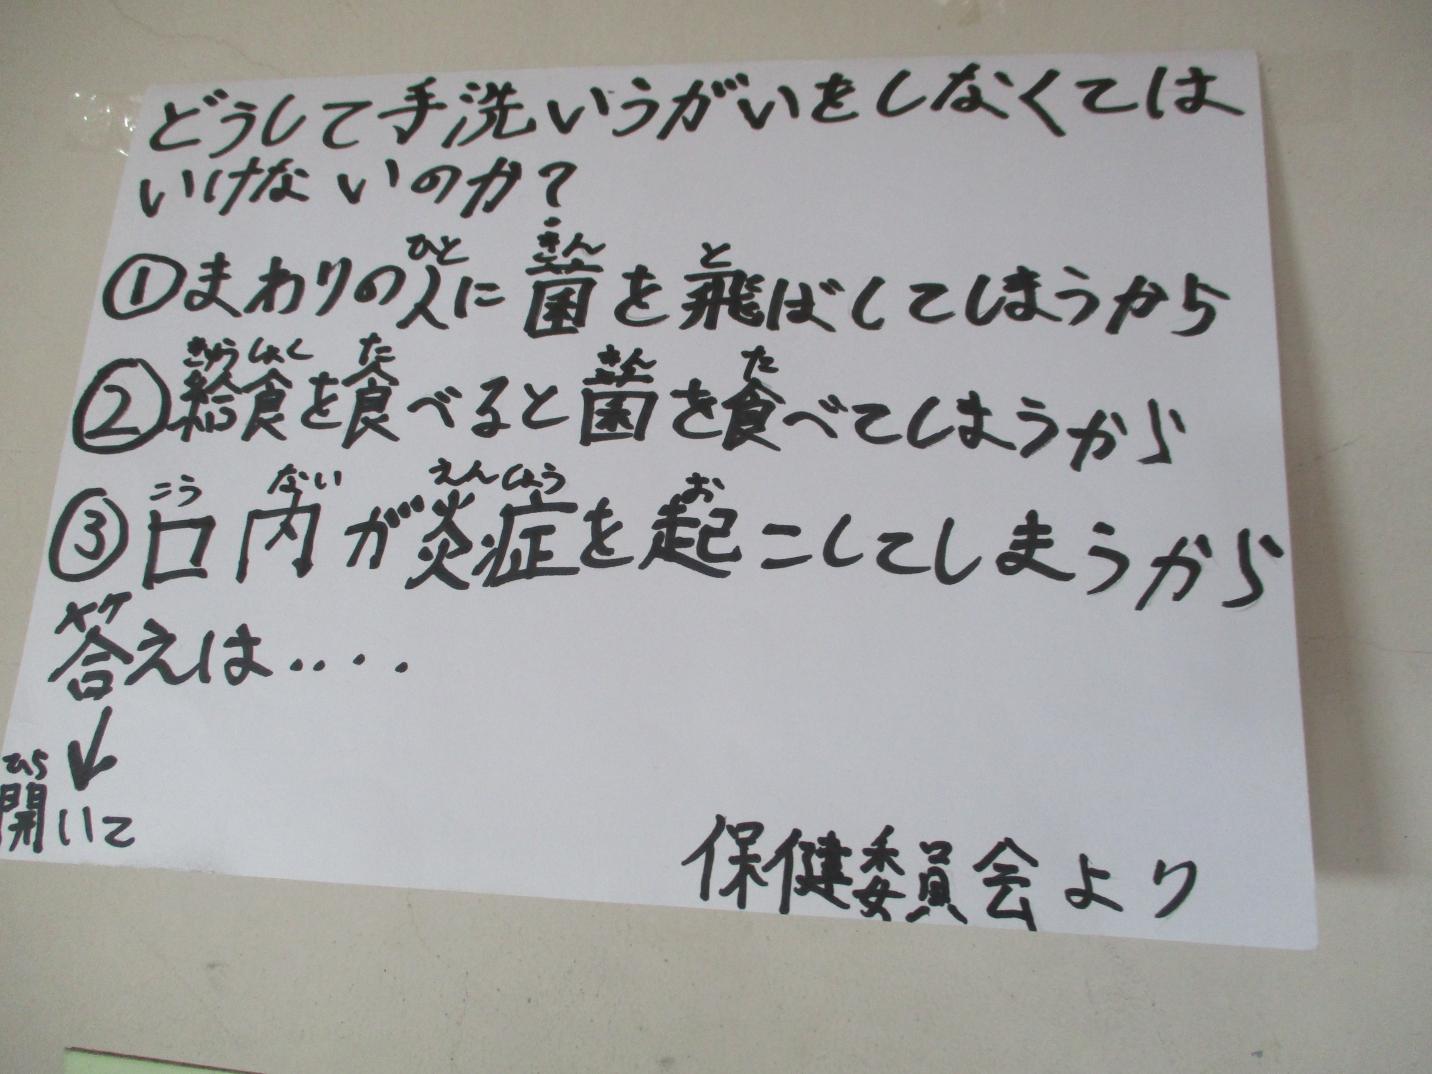 どうして手洗いうがいをしなくては
いけないのか?
①まわりの人に菌を飛ばしてしまうから
ひと きん と
②給食を食べると菌を食べてしまうから
きゅうしょく た きん た
③口内が炎症を起こしてしまうから
こう ない えんしょう お
答えは....
↓
ひら
開いて
保健委員会より